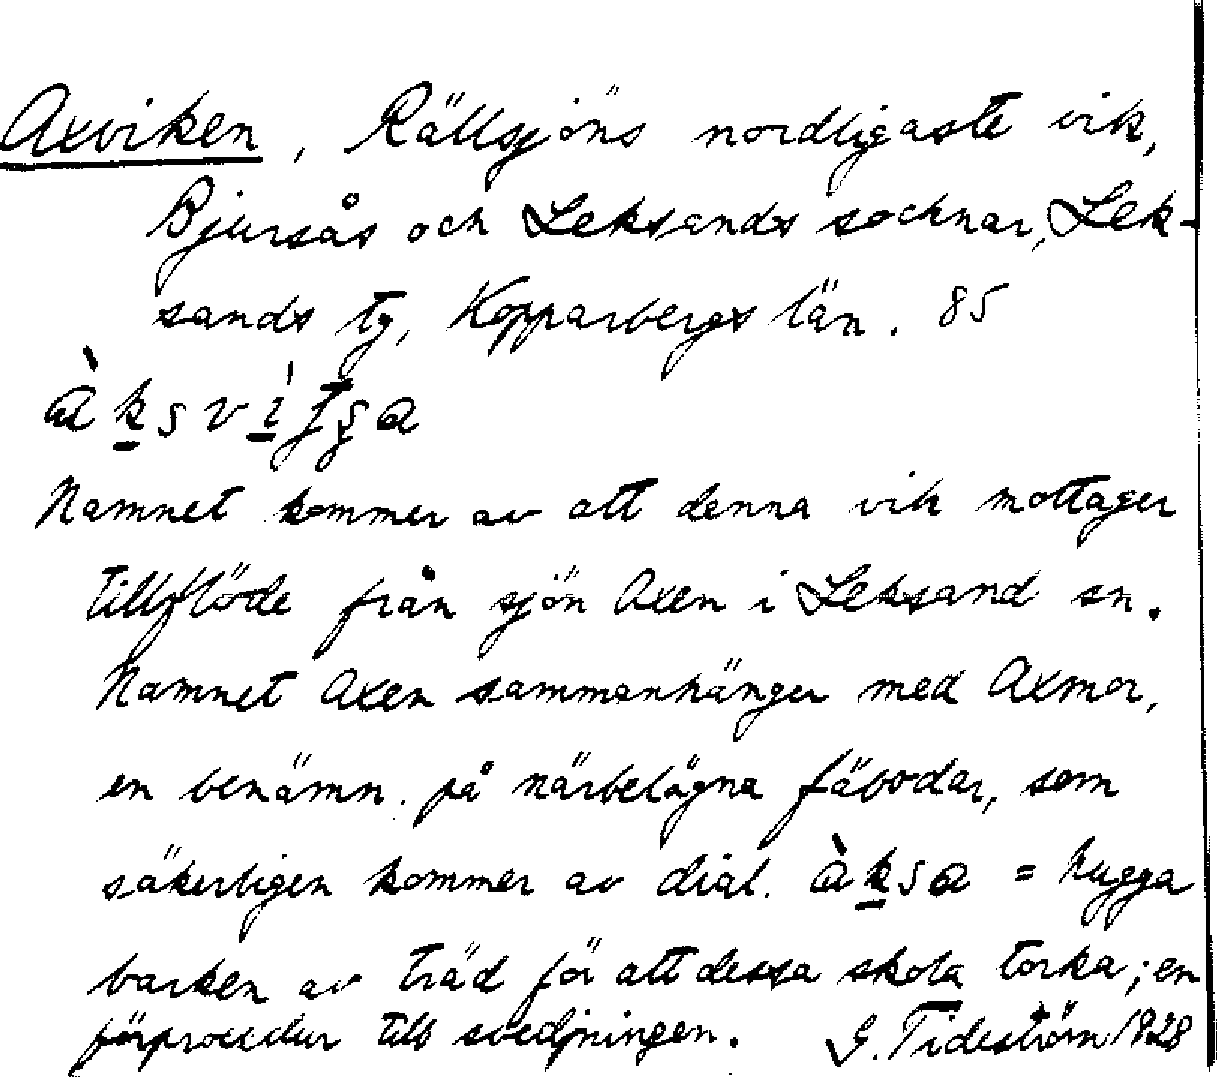 Axviken, Rällsjöns nordligaste vik,
Bjursås och Leksands socknar, Lek-
sands tg, Kopparbergs län. 85
àksvi
Namnet kommer av att denna vik mottager
tillflöde från sjön Axen i Leksand sn.
Namnet Axen sammanhänger med Axmor,
en benämn. på närbelägna fäbodar, som
säkerligen kommer av dial. àksa = hugga
barken av träd för att dessa skola torka; en
förprocedur till svedjningen. G. Tideström 1928